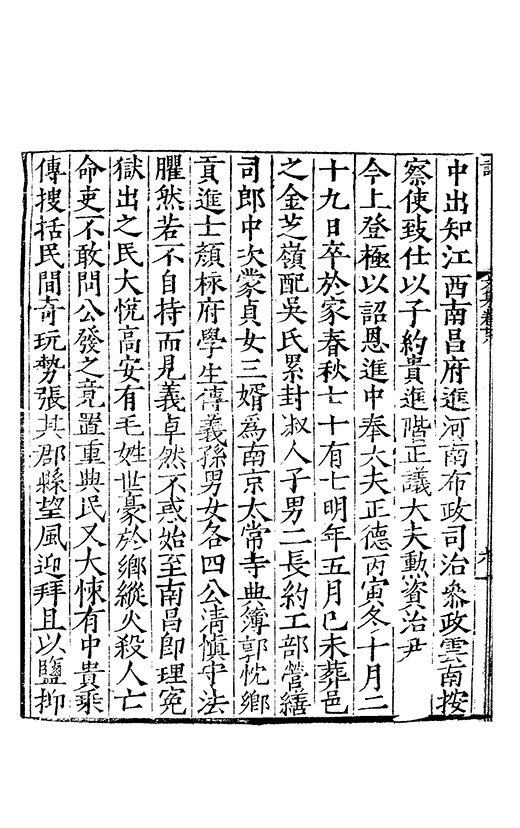 中出知江西南昌府進河南布政司治參政雲南按
察使致仕以子約貴進階正議大夫勳資治尹
今上登極以詔恩進中奉大夫正德丙寅冬十月二
十九日卒於家春秋七十有七明年五月己未葬邑
之金芝嶺配吳氏累封淑人子男二長約工部營繕
司郎中次蒙貞女三婿爲南京太常寺典簿郭忱鄉
貢進士顏㭿府學生傅義孫男女各四公清慎守法
臞然若不自持而見義卓然不惑始至南昌卽理冤
獄出之民大悅高安有毛姓世豪於鄉縱火殺人亡
命吏不敢問公發之竟置重典民又大悚有中貴乘
傳搜括民間奇玩勢張甚郡縣望風迎拜且以鹽抑